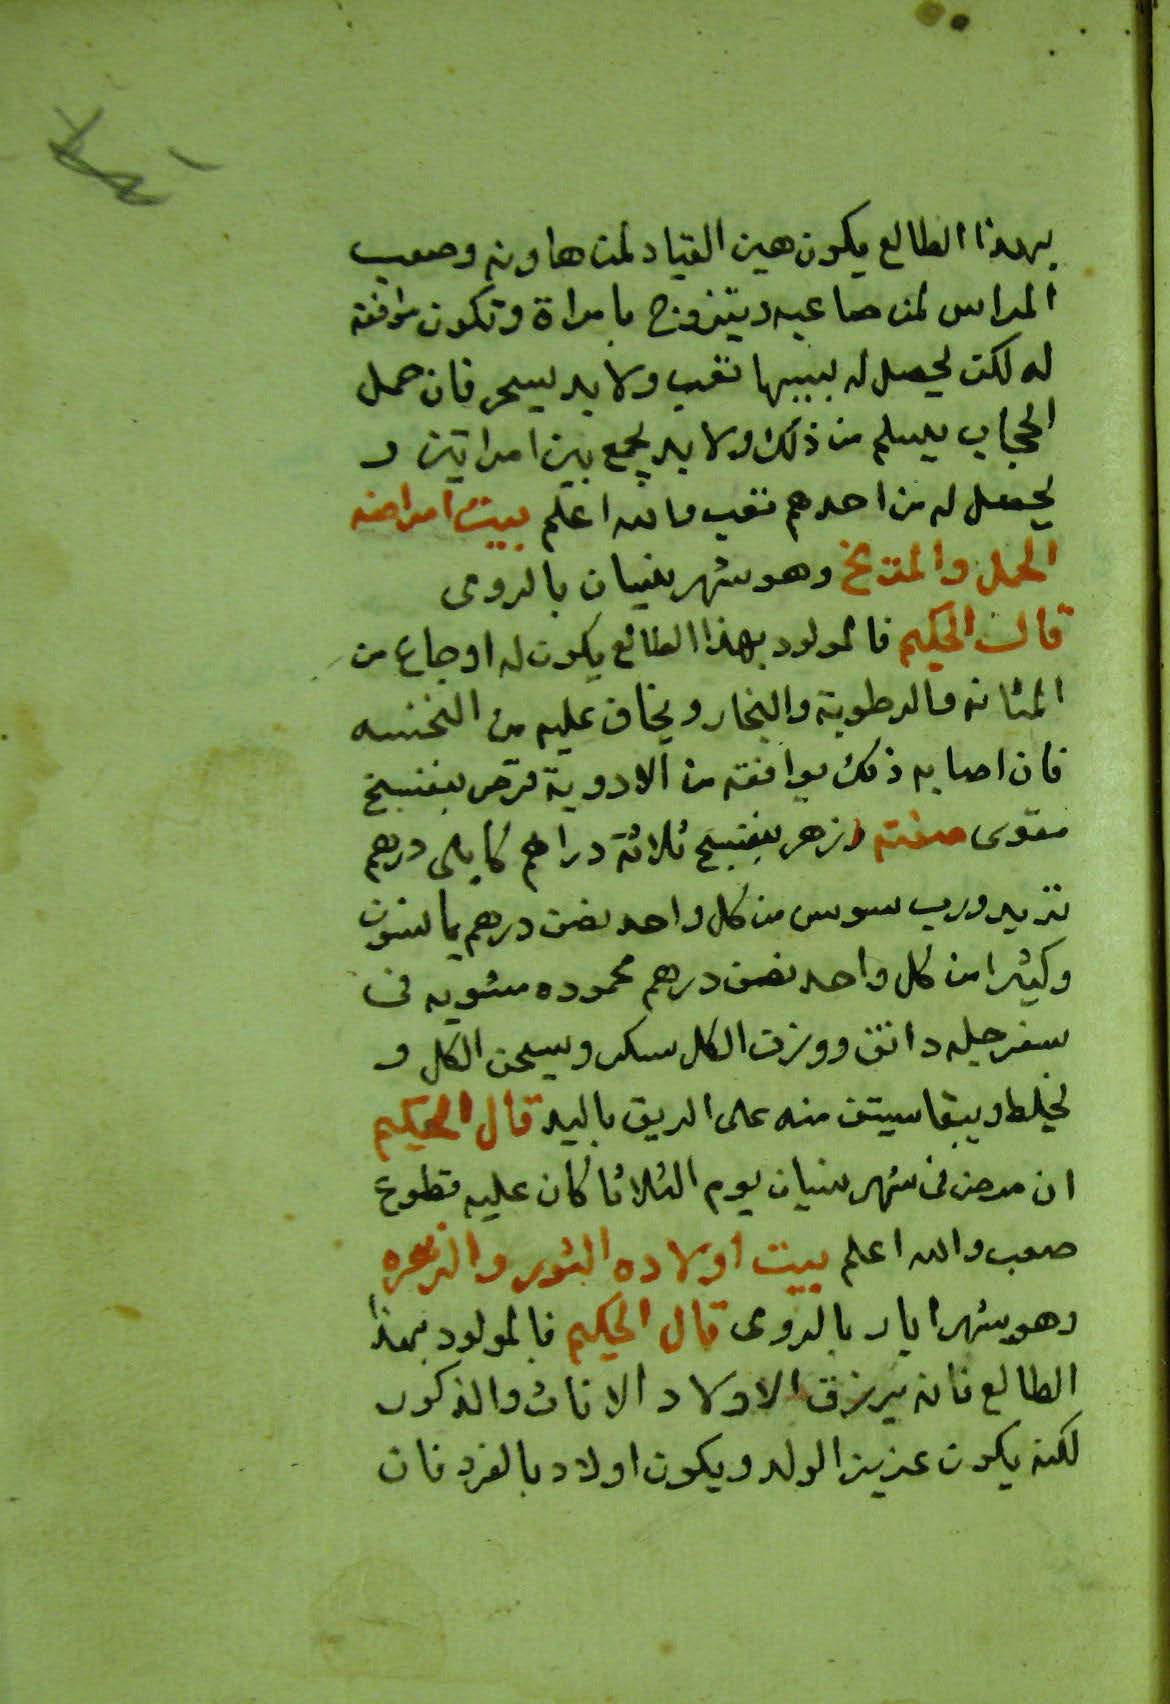 بهذا الطالع يكون هين القياد لمن هاونه وصعب
المراس لمن صاعبه ويتزوج بامراة وتكون موافقة
له لكن يحصل له بسببها تعب ولا بد يسحر فان حمل
الحجاب يسلم من ذلك ولا بد يجمع بين امراتين و
يحصل له من احدهم تعب والله اعلم بيت امراضه
الحمل والمريخ وهو شهر نيسان بالرومى
قال الحكيم فالمولود بهذا الطالع يكون له اوجاع من
المثانه والرطوبة والبخار ويخاف عليه من
فان اصابه ذلك يوافقه من الادوية قرص بنفسج
مقوى صفته زهر بنفسج ثلاثة دراهم كابلى درهم
تربد ورب سوس من كل واحد نصف درهم يانسون
وكثيرا من كل واحد نصف درهم محموده مشويه فى
سفرجله دانق ووزن الكل سكر ويسحق الكل و
يخلط ويبقا يستف منه على الريق باليد قال الحكيم
ان مرض فى شهر نيسان يوم الثلاثا كان عليه قطوع
صعب والله اعلم بيت اولاده الثور والزهره
وهو شهر ايار بالرومى قال الحكيم فالمولود بهذا
الطالع فانه يرزق الاولاد الاناث والذكور
لكنه يكون عزيز الولد ويكون اولاد بالفرد فان